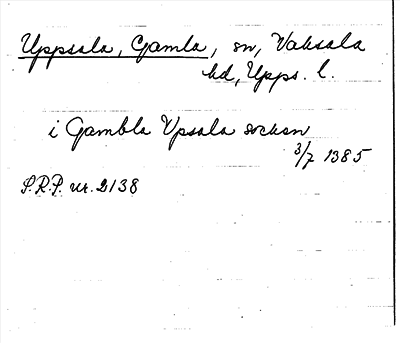 Uppsala, Gamla, sn, Vaksala
hd, Upps. l.
i Gambla Vpsala sochen
3/7 1385
S.R.P. nr. 2138